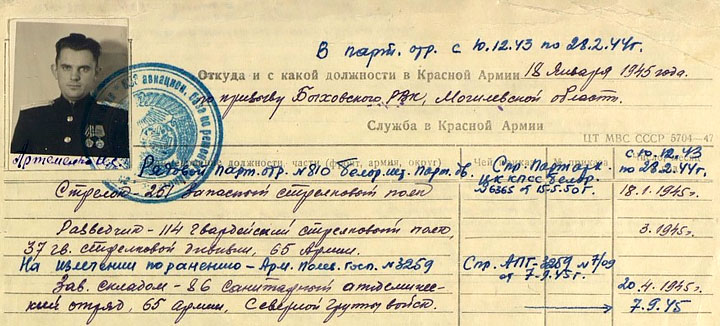 В парт. отр. с 10.12.43 по 28.2.44г.
Откуда и с какой должности в Красной Армии 18 Января 1945 года.
по призыву Быховского РВК, Могилевской области.
Служба в Красной Армии
ЦТ МВС СССР 5704—47
Артеменко
должности части (фронт, армия, округ)
Чей приказ
№ приказа
с 10.12.43
Рядовой Парт. отр. №810 Белор.
Спр. Парт.
по 28.2.44г.
ЦК КПСС Белор.
Стрелок - 251 Запасный стрелковый полк
№6365 от 15.5.50г.
18.1.1945г.
Разведчик - 114 гвардейский стрелковый полк,
3.1945г.
37 гв. стрелковой дивизии, 65 Армии.
На излечении по ранению - Арм. Полев. госп. №3259
Спр. АПГ-3259 №7/09
от 7-9.45г.
Зав. складом - 86 Санитарный
20.4.1945г.
отряд, 65 Армии, Северной группы войск.
7.9.45